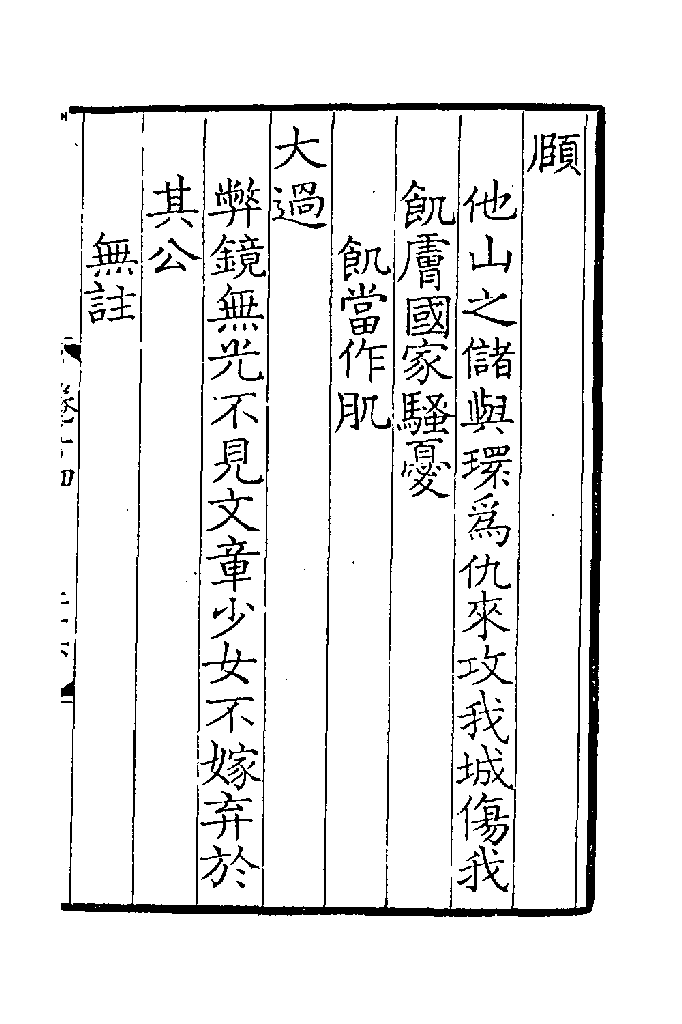 頤
他山之儲與環為仇來攻我城傷我
飢膚國家騷憂
飢當作肌
大過
弊鏡無光不見文章少女不嫁弃於
其公
無註
卷十四